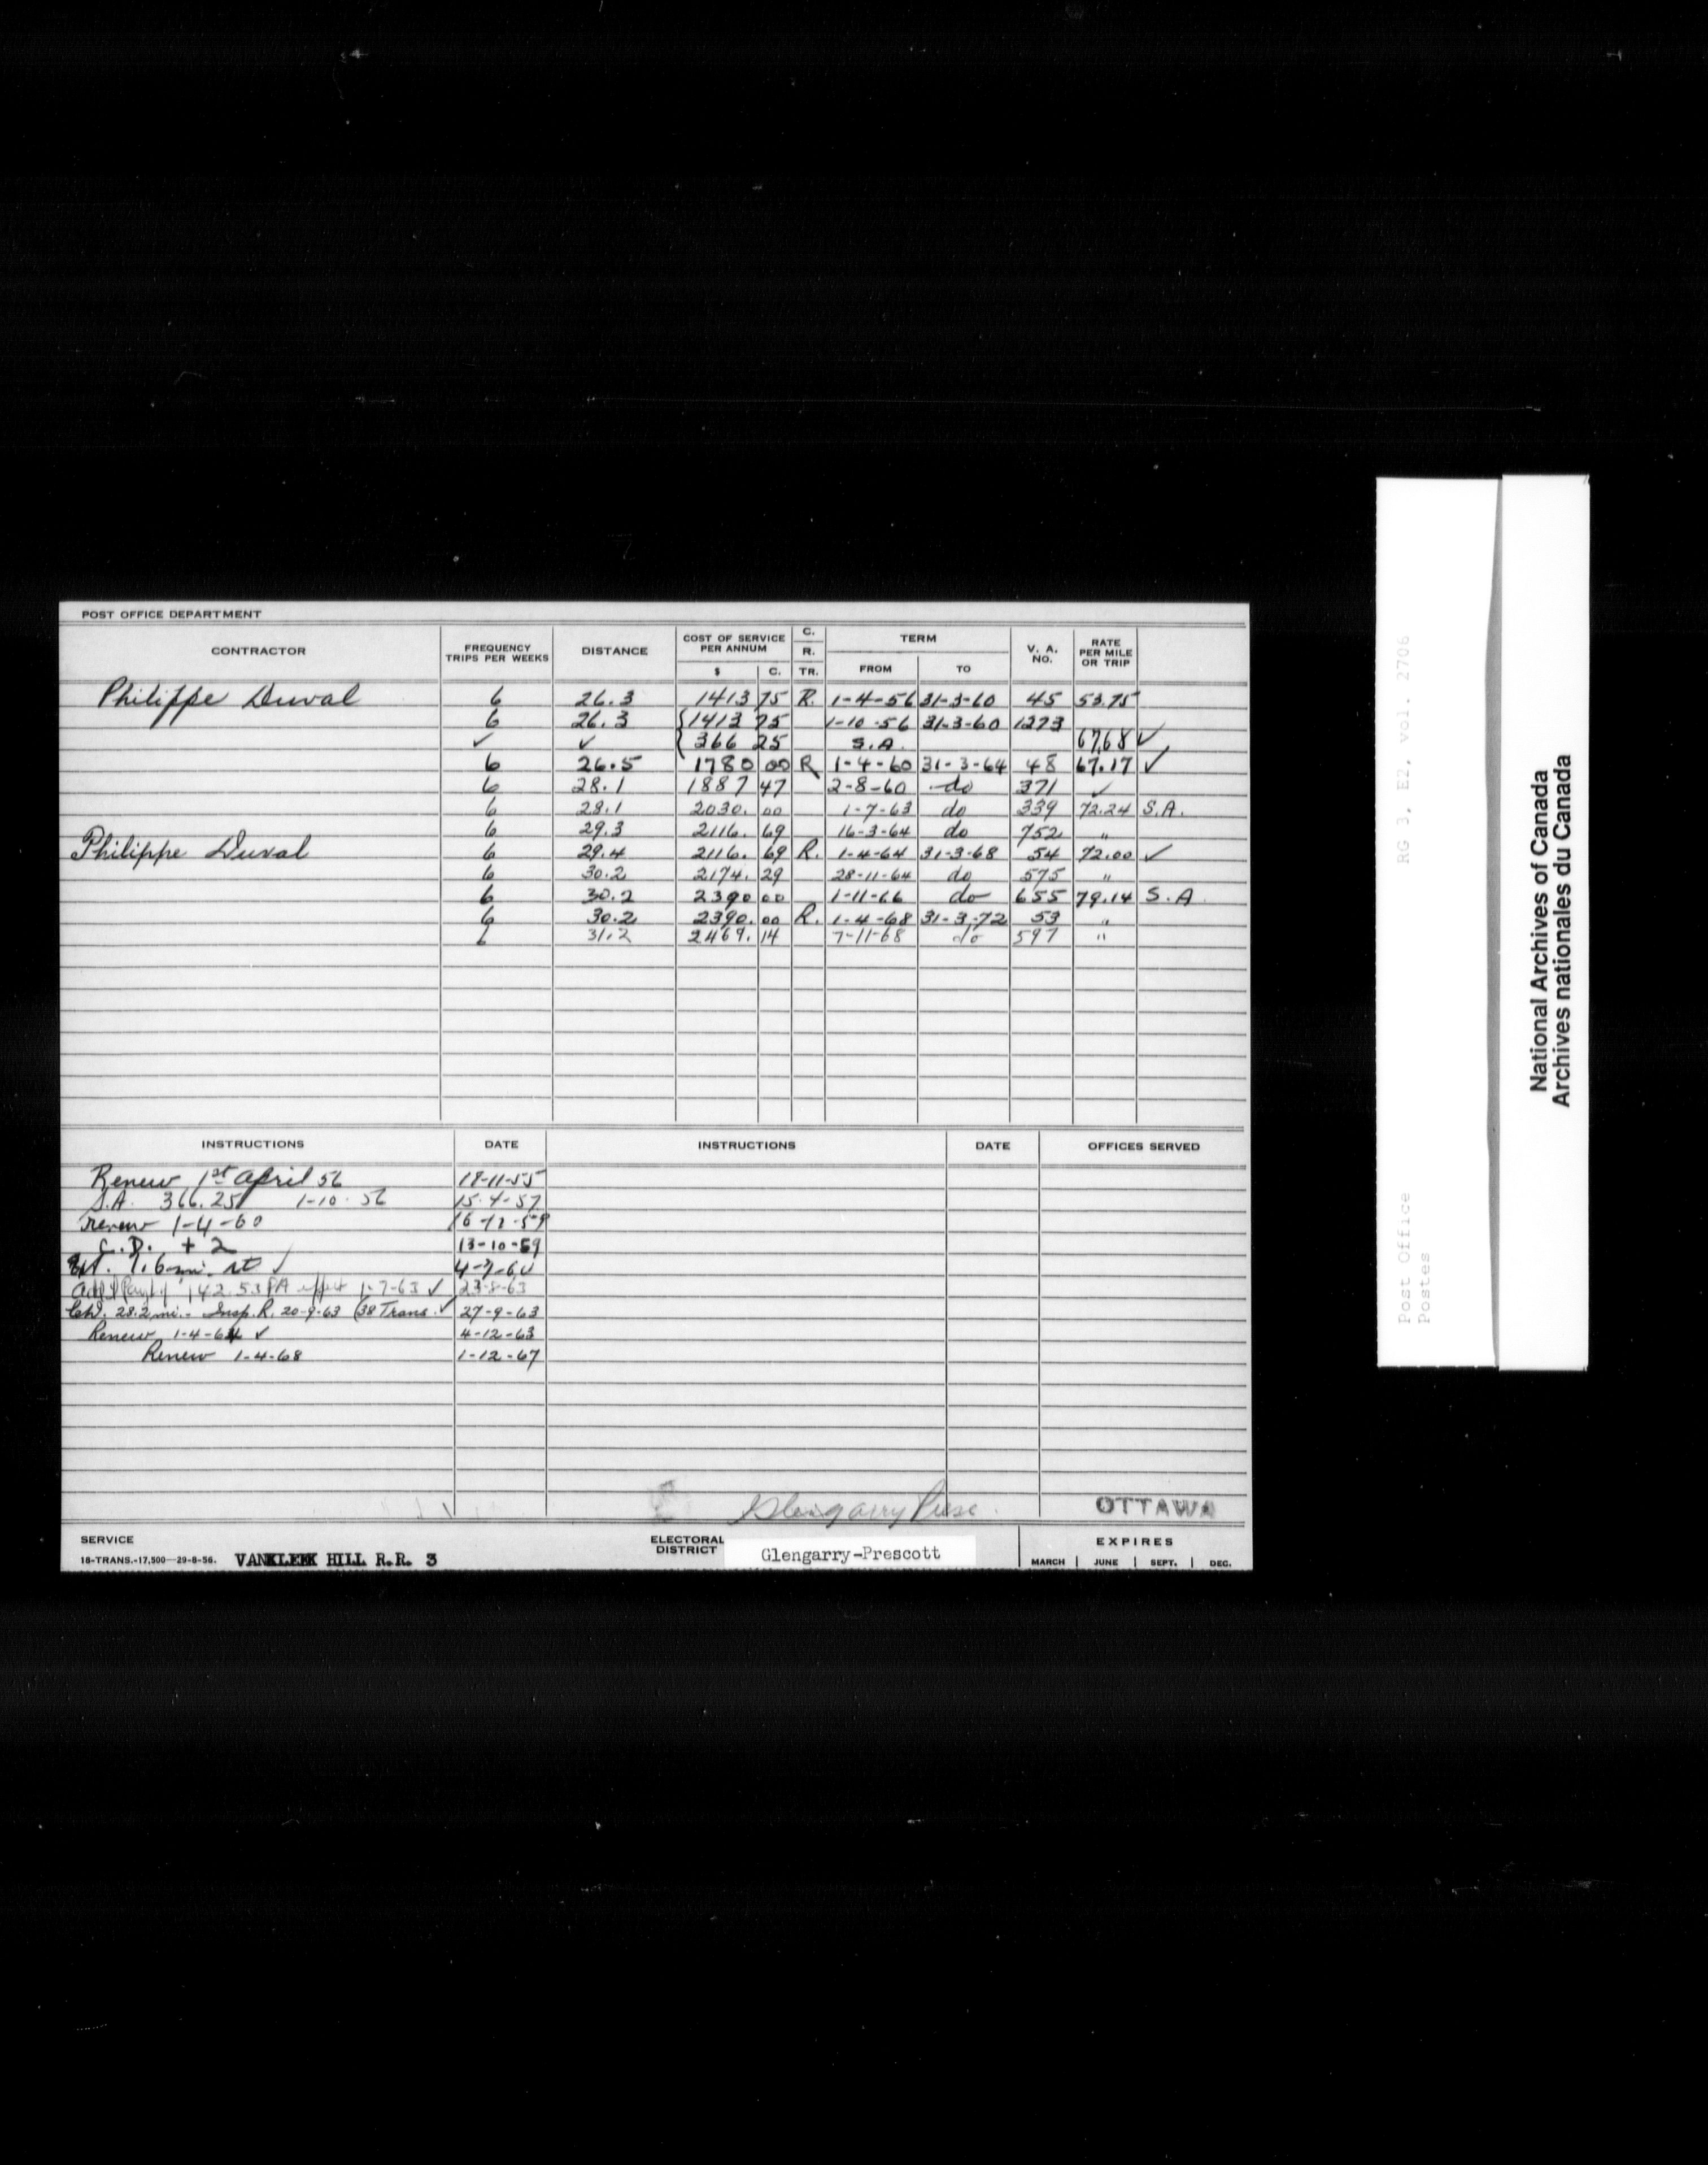 POST OFFICE DEPARTMENT
CONTRACTOR FREQUENCY TRIPS PER WEEKS DISTANCE COST OF SERVICE PER ANNUM $ C. C. R. TR. TERM FROM TO V. A. NO. RATE PER MILE OR TRIP
Philippe Duval 6 26.3 1413 75 R. 1-4-56 31-3-60 45 53.75
6 26.3 {1413 75 1-10-56 31-3-60 1273
✓ ✓ {366 25 S.A. 67.68 ✓
6 26.5 1780 00 R 1-4-60 31-3-64 48 67.17 ✓
6 28.1 1887 47 2-8-60 do 371 ✓
6 28.1 2030. 00 1-7-63 do 339 72.24 S.A.
6 29.3 2116. 69 16-3-64 do 752 "
Philippe Duval 6 29.4 2116. 69 R. 1-4-64 31-3-68 54 72.00 ✓
6 30.2 2174. 29 28-11-64 do 575 "
6 30.2 2390 00 1-11-66 do 655 79.14 S.A.
6 30.2 2390. 00 R. 1-4-68 31-3-72 53 "
6 31.2 2469. 14 7-11-68 do 597 "
INSTRUCTIONS DATE INSTRUCTIONS DATE OFFICES SERVED
Renew 1st April 56 18-11-55
S.A. 366.25 1-10-56 15-4-57
renew 1-4-60
C.D. + 2 13-10-59
Ext. 1.6 mi. rt ✓ 4-7-60
142.53 PA effect 1-7-63 ✓ 23-8-63
Chd. 28.2 mi. - Insp. R. 20-9-63 (38 Trans. ✓ 27-9-63
Renew 1-4-64 ✓ 4-12-63
Renew 1-4-68 1-12-67
Glengarry Presc.
OTTAWA
SERVICE
18-TRANS.-17,500—29-8-56. VANKLEEK HILL R.R. 3
ELECTORAL DISTRICT Glengarry-Prescott
EXPIRES
MARCH JUNE SEPT. DEC.
RG 3, E2, vol. 2706
Post Office
Postes
National Archives of Canada
Archives nationales du Canada